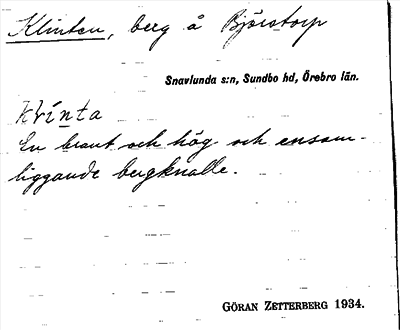 Klinten, berg å Björstorp
Snavlunda s:n, Sundbo hd, Örebro län.
klínta
En brant och hög och ensam-
liggande bergknalle.
GÖRAN ZETTERBERG 1934.